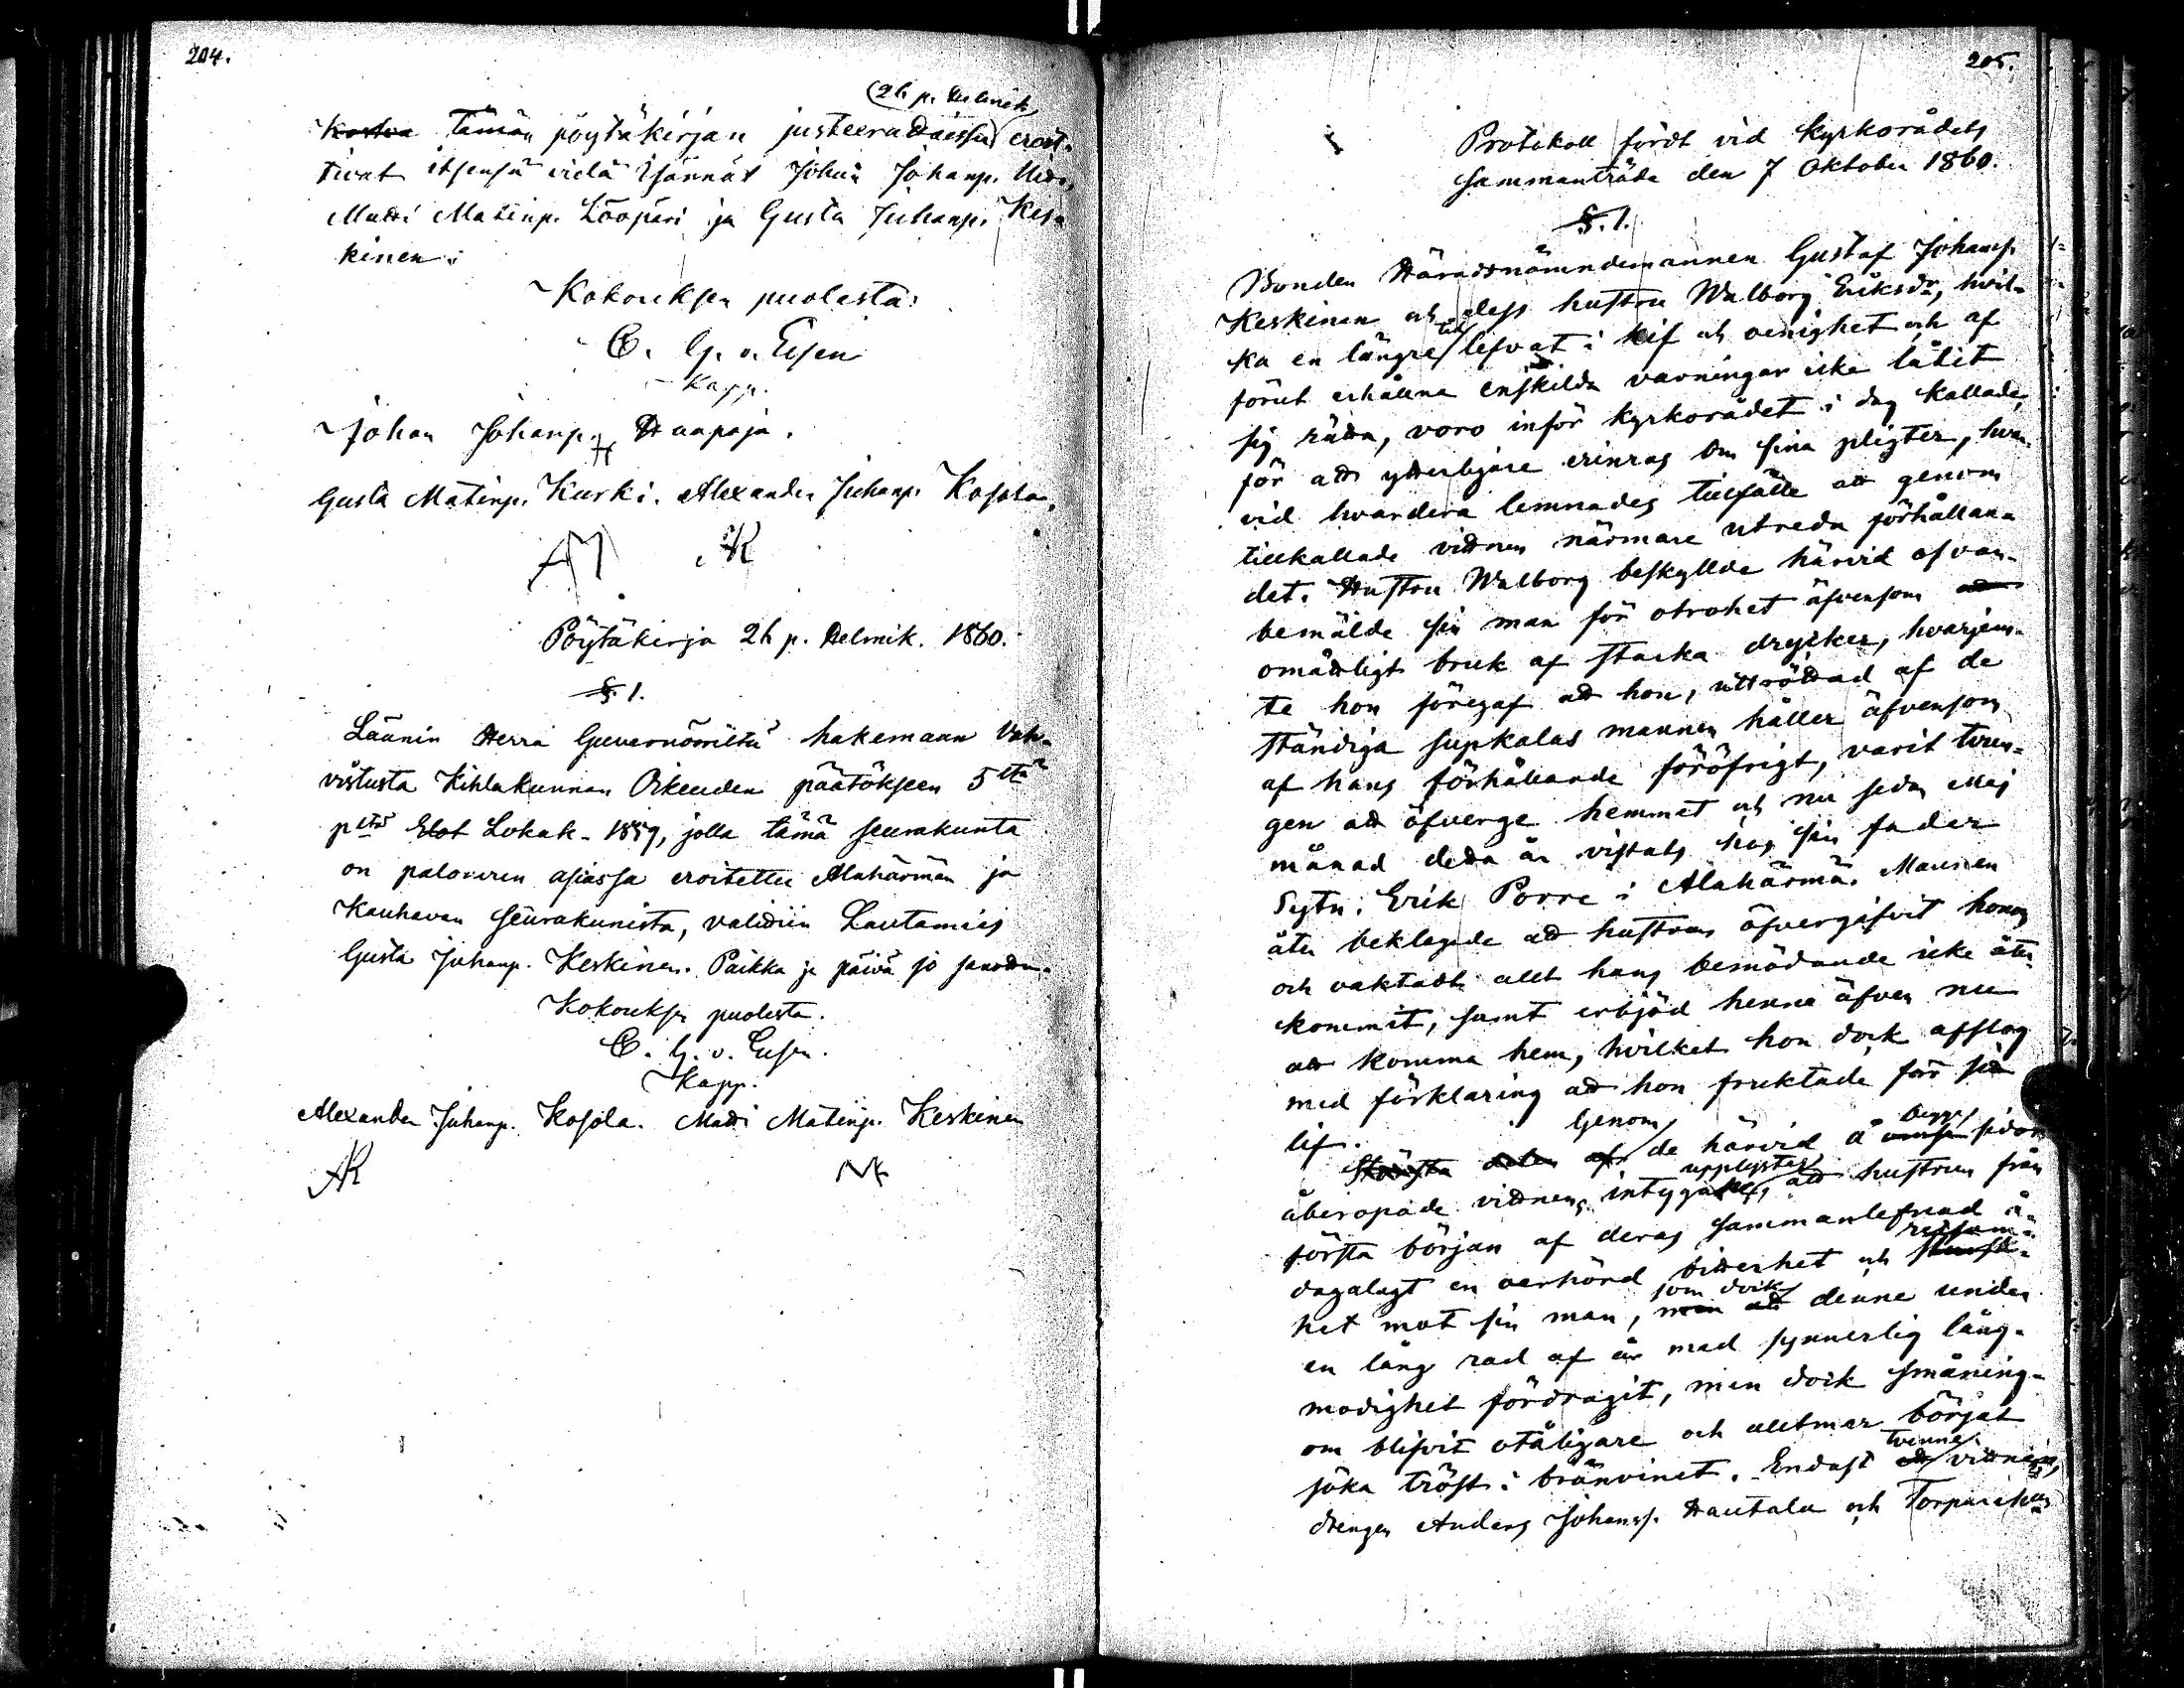 204.
(26 p. Helmik.
Kostva tämän pöytäkirjan justeeradaissa eroit-
tivat itsensä vielä Isännät Juha Johanp.
Matti Matinp. Lööpäri ja Gusta Juhanp. Kes-
kinen.
Kokouksen puolesta:
C. G. v. Essen
Kapp.
Johan Johanp. Haapoja.
Gusta Matinp. Kurki. Alexander Juhanp. Kosola.
AM AK
Pöytäkirja 26 p. Helmik. 1860.
§. 1.
Läänin Herra Guvernööriltä hakemaan Vah-
vistusta Kihlakunnan Oikeuden päätökseen 5stä
pstä Elok Lokak. 1859, jolla tämä seurakunta
on paloveron asiassa eroitettu Alahärmän ja
Kauhavan seurakunista, validiin Lautamies
Gusta Juhanp. Keskinen. Paikka ja päivä jo sanottu.
Kokouksen puolesta.
C. G. v. Essen.
Kapp.
Alexander Juhanp. Kosola. Matti Matinp. Keskinen
AK MK
205.
Protokoll fördt vid Kyrkorådets
sammanträde den 7 Oktober 1860.
§. 1.
Bonden Häradsnämndemannen Gustaf Johansp.
Keskinen och dess hustru Walborg Eriksdr, hvil-
ka en längre tid lefvat i kif och oenighet och af
förut erhållna enskilda varningar icke låtit
sig rätta, voro inför kyrkorådet i dag kallade,
för att ytterligare erinras om sina pligter, hvar-
vid hvardera lemnades tillfälle att genom
tillkallade vittnen närmare utreda förhållan-
det. Hustru Walborg beskyllde härvid ofvan-
bemälde sin man för otrohet äfvensom att
omåttligt bruk af starka drycker, hvarjem-
te hon föregaf att hon, uttröttad af de
ständiga supkalas mannen håller äfvensom
af hans förhållande föröfrigt, varit tvun-
gen att öfverge hemmet och nu sedan Maj
månad detta år vistats hos sin fader
Sytn. Erik Porre i Alahärmä. Mannen
åter beklagade att hustrun öfvergifvit honom
och oaktadt allt hans bemödande icke åter-
kommit, samt erbjöd henne äfven nu
att komma hem, hvilket hon dock afslog
med förklaring att hon fruktade för sitt
lif.
Genom begge
Största delen af de härvid å ömse sidor
upplystes
åberopade vittnen, intygade, att hustrun från
första början af deras sammanlefnad å-
dagalagt en oerhörd bitterhet och
som dock
het mot sin man, men att denne under
en lång rad af år med synnerlig lång-
modighet fördragit, men dock småning-
om blifvit otåligare och alltmer börjat
tvenne
söka tröst i bränvinet. Endast vittnen,
drengen Anders Johansp. Hautala och Torpare